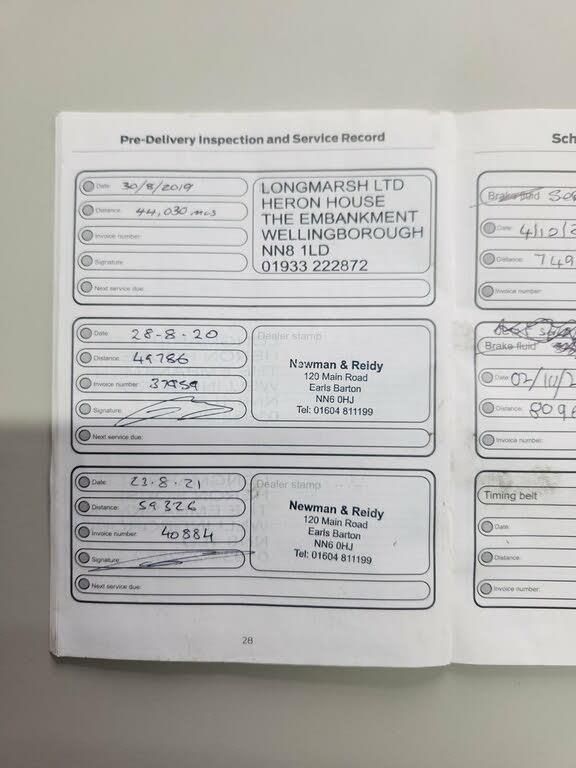 Pre-Delivery Inspection and Service Record
Date: 30/8/2019
Distance: 44,030 mls
Invoice number:
Signature:
Next service due:
LONGMARSH LTD
HERON HOUSE
THE EMBANKMENT
WELLINGBOROUGH
NN8 1LD
01933 222872
Date: 28-8-20
Distance: 49786
Invoice number: 37959
Signature:
Next service due:
Dealer stamp
Newman & Reidy
120 Main Road
Earls Barton
NN6 0HJ
Tel: 01604 811199
Date: 23.8.21
Distance: 59326
Invoice number: 40884
Signature:
Next service due:
Dealer stamp
Newman & Reidy
120 Main Road
Earls Barton
NN6 0HJ
Tel: 01604 811199
28
Sch
Brake fluid
Date: 4/10/2
Distance: 749
Invoice number:
Brake fluid
Date: 02/10/2
Distance: 8096
Invoice number:
Timing belt
Date:
Distance:
Invoice number: